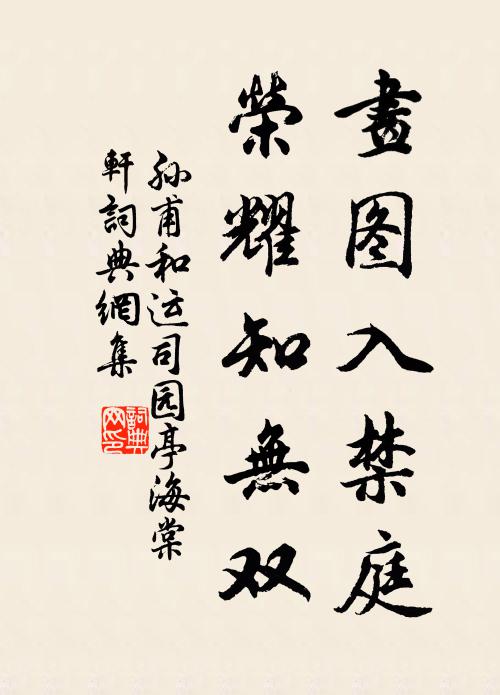 畫图入禁庭
榮耀知無双
孙甫和运司园亭海棠
軒詞典網集
詞典网印